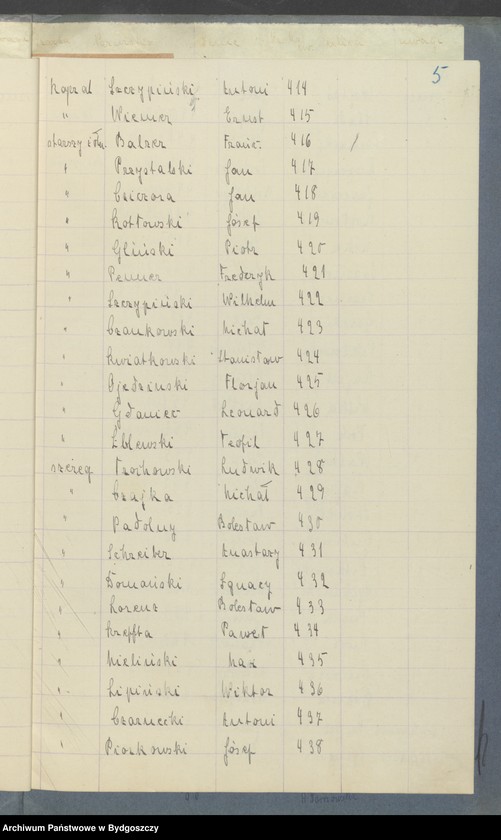 5
Kapral Szczypiński Antoni 414
" Wiemer Ernst 415
starszy żołn. Balzer Franc. 416 /
" Przystalski Jan 417
" Cziczora Jan 418
" Kottowski Józef 419
" Gliński Piotr 420
" Penner Frederyk 421
" Szczypiński Wilhelm 422
" Czankowski Michał 423
" Kwiatkowski Stanisław 424
" Florjan 425
" Gdaniec Leonard 426
" Eblewski Teofil 427
szereg Trochowski Ludwik 428
" Czajka Michał 429
" Badolny Bolesław 430
" Schreiber Anastazy 431
" Domański Ignacy 432
" Lorenz Bolesław 433
" Kreffta Paweł 434
" Mieliński Max 435
" Lipiński Wiktor 436
" Czarnecki Antoni 437
" Piotkowski Józef 438
Archiwum Państwowe w Bydgoszczy